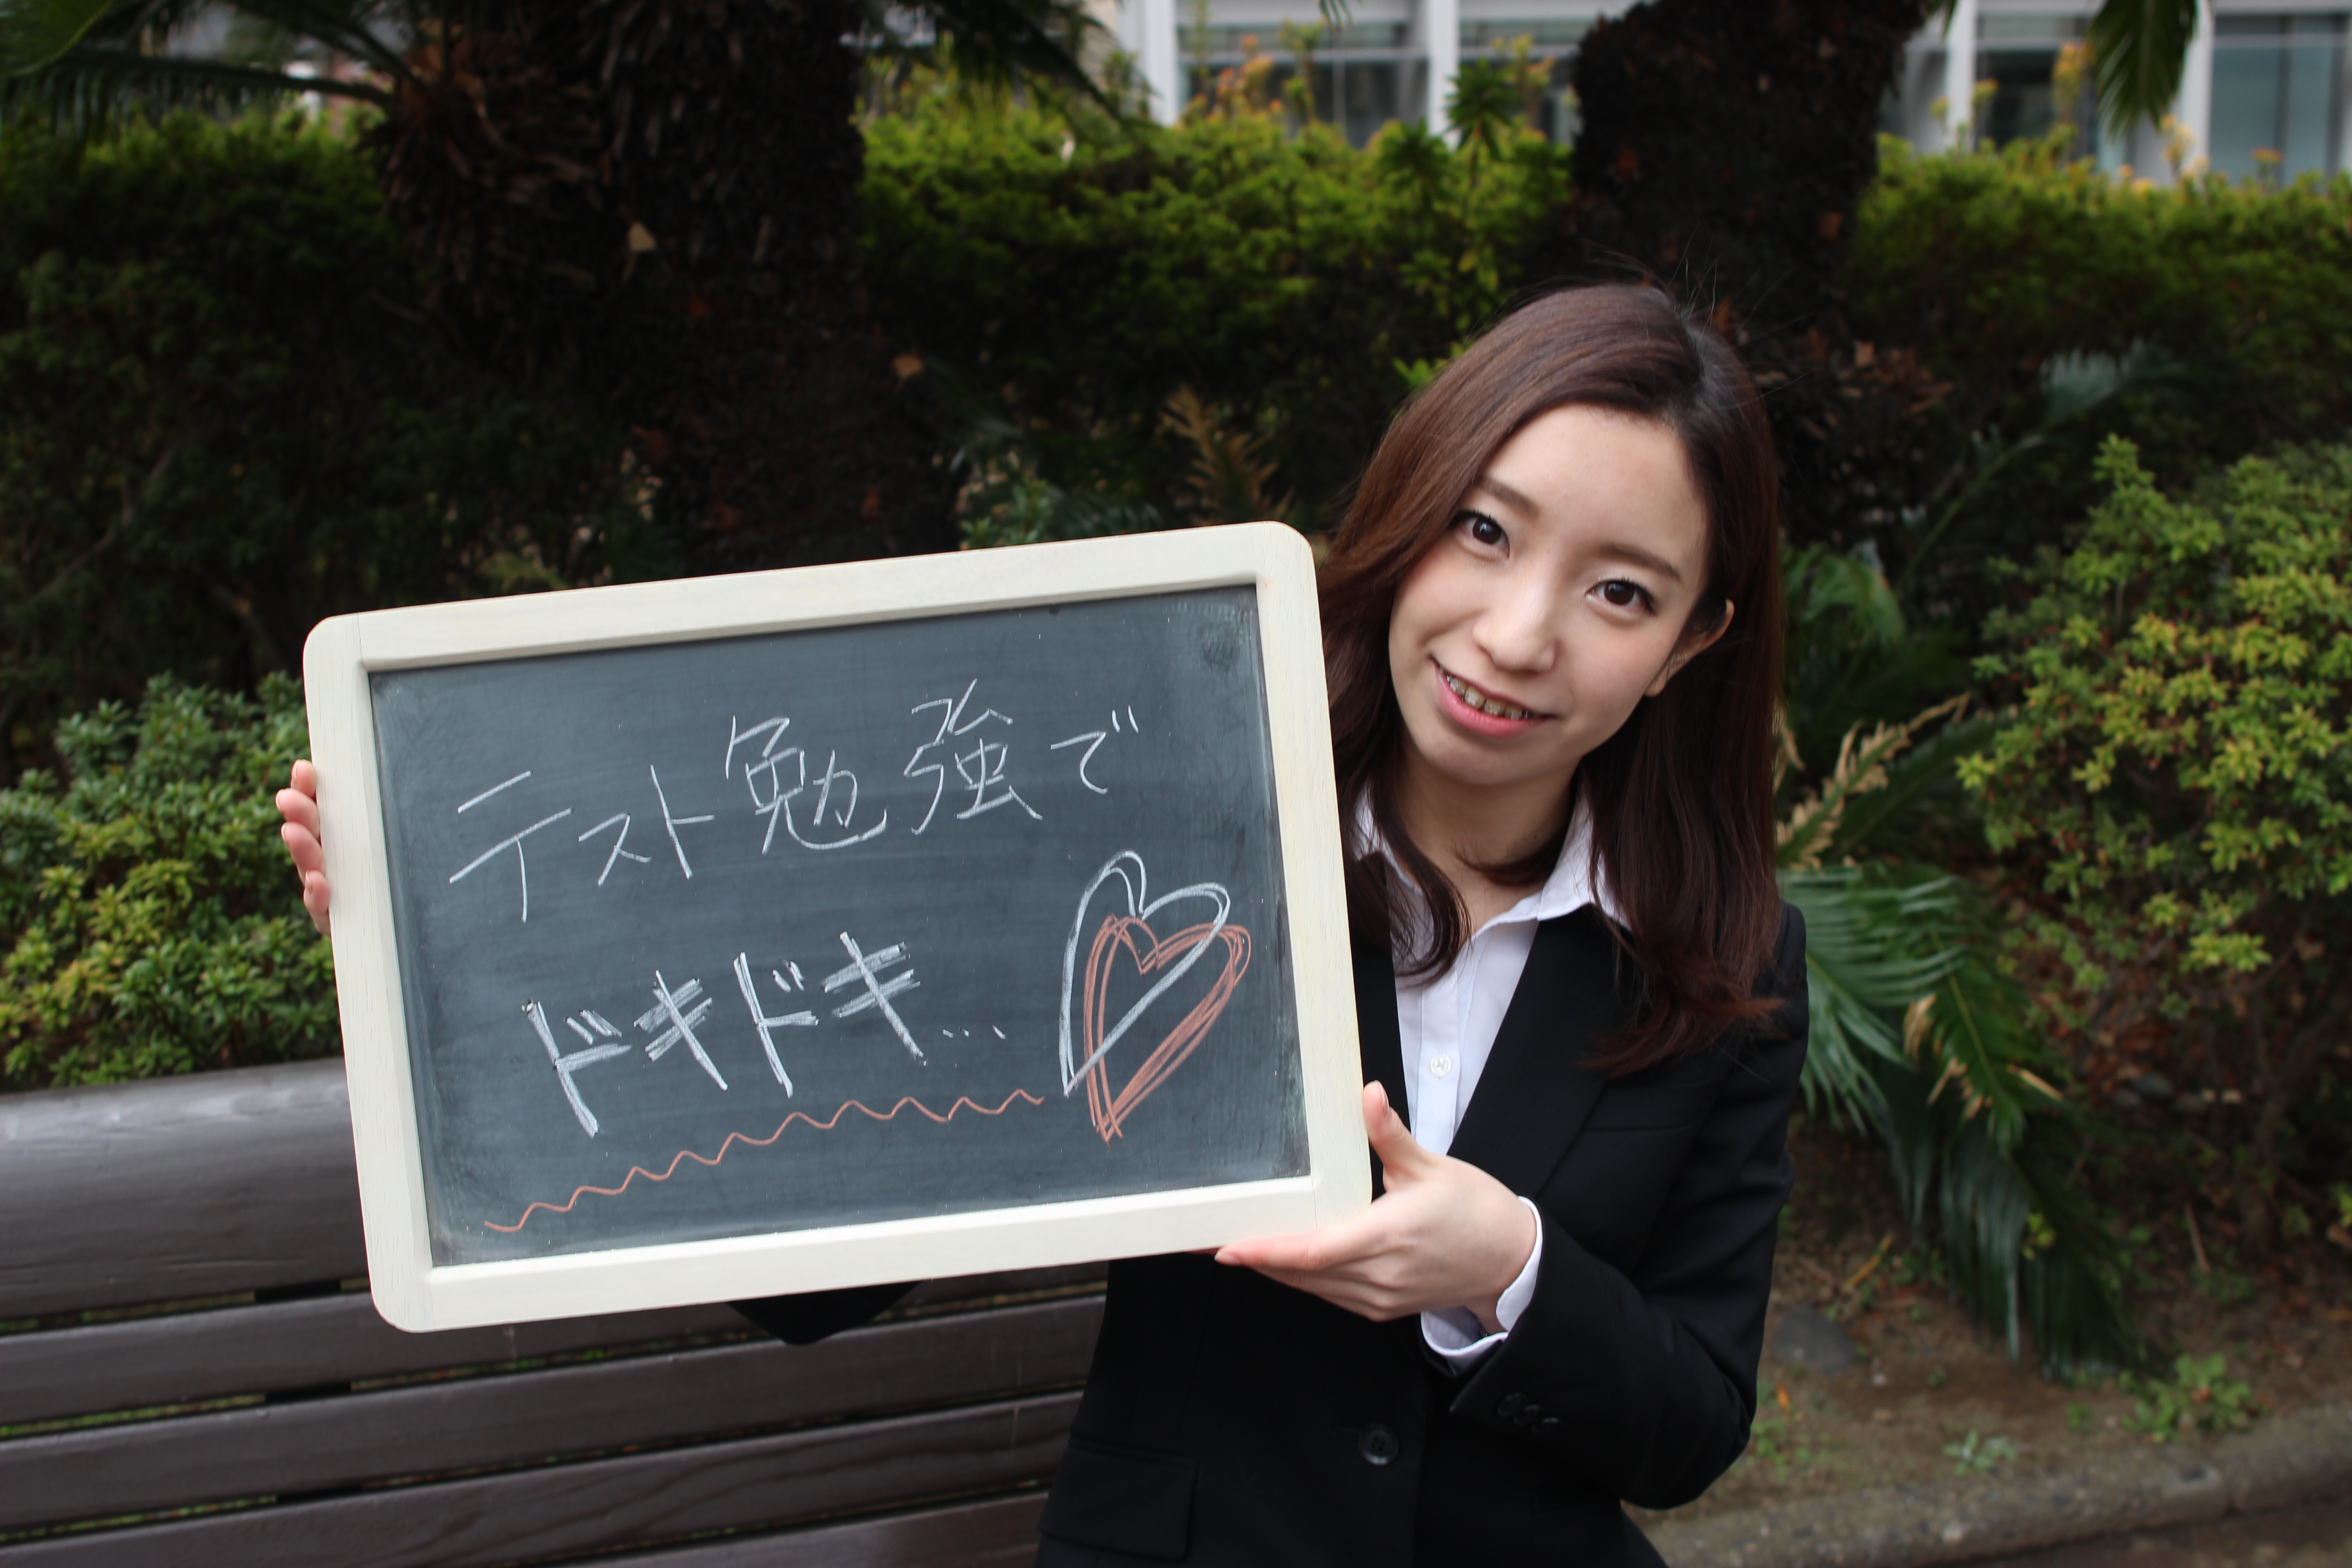 テスト勉強で
ドキドキ...